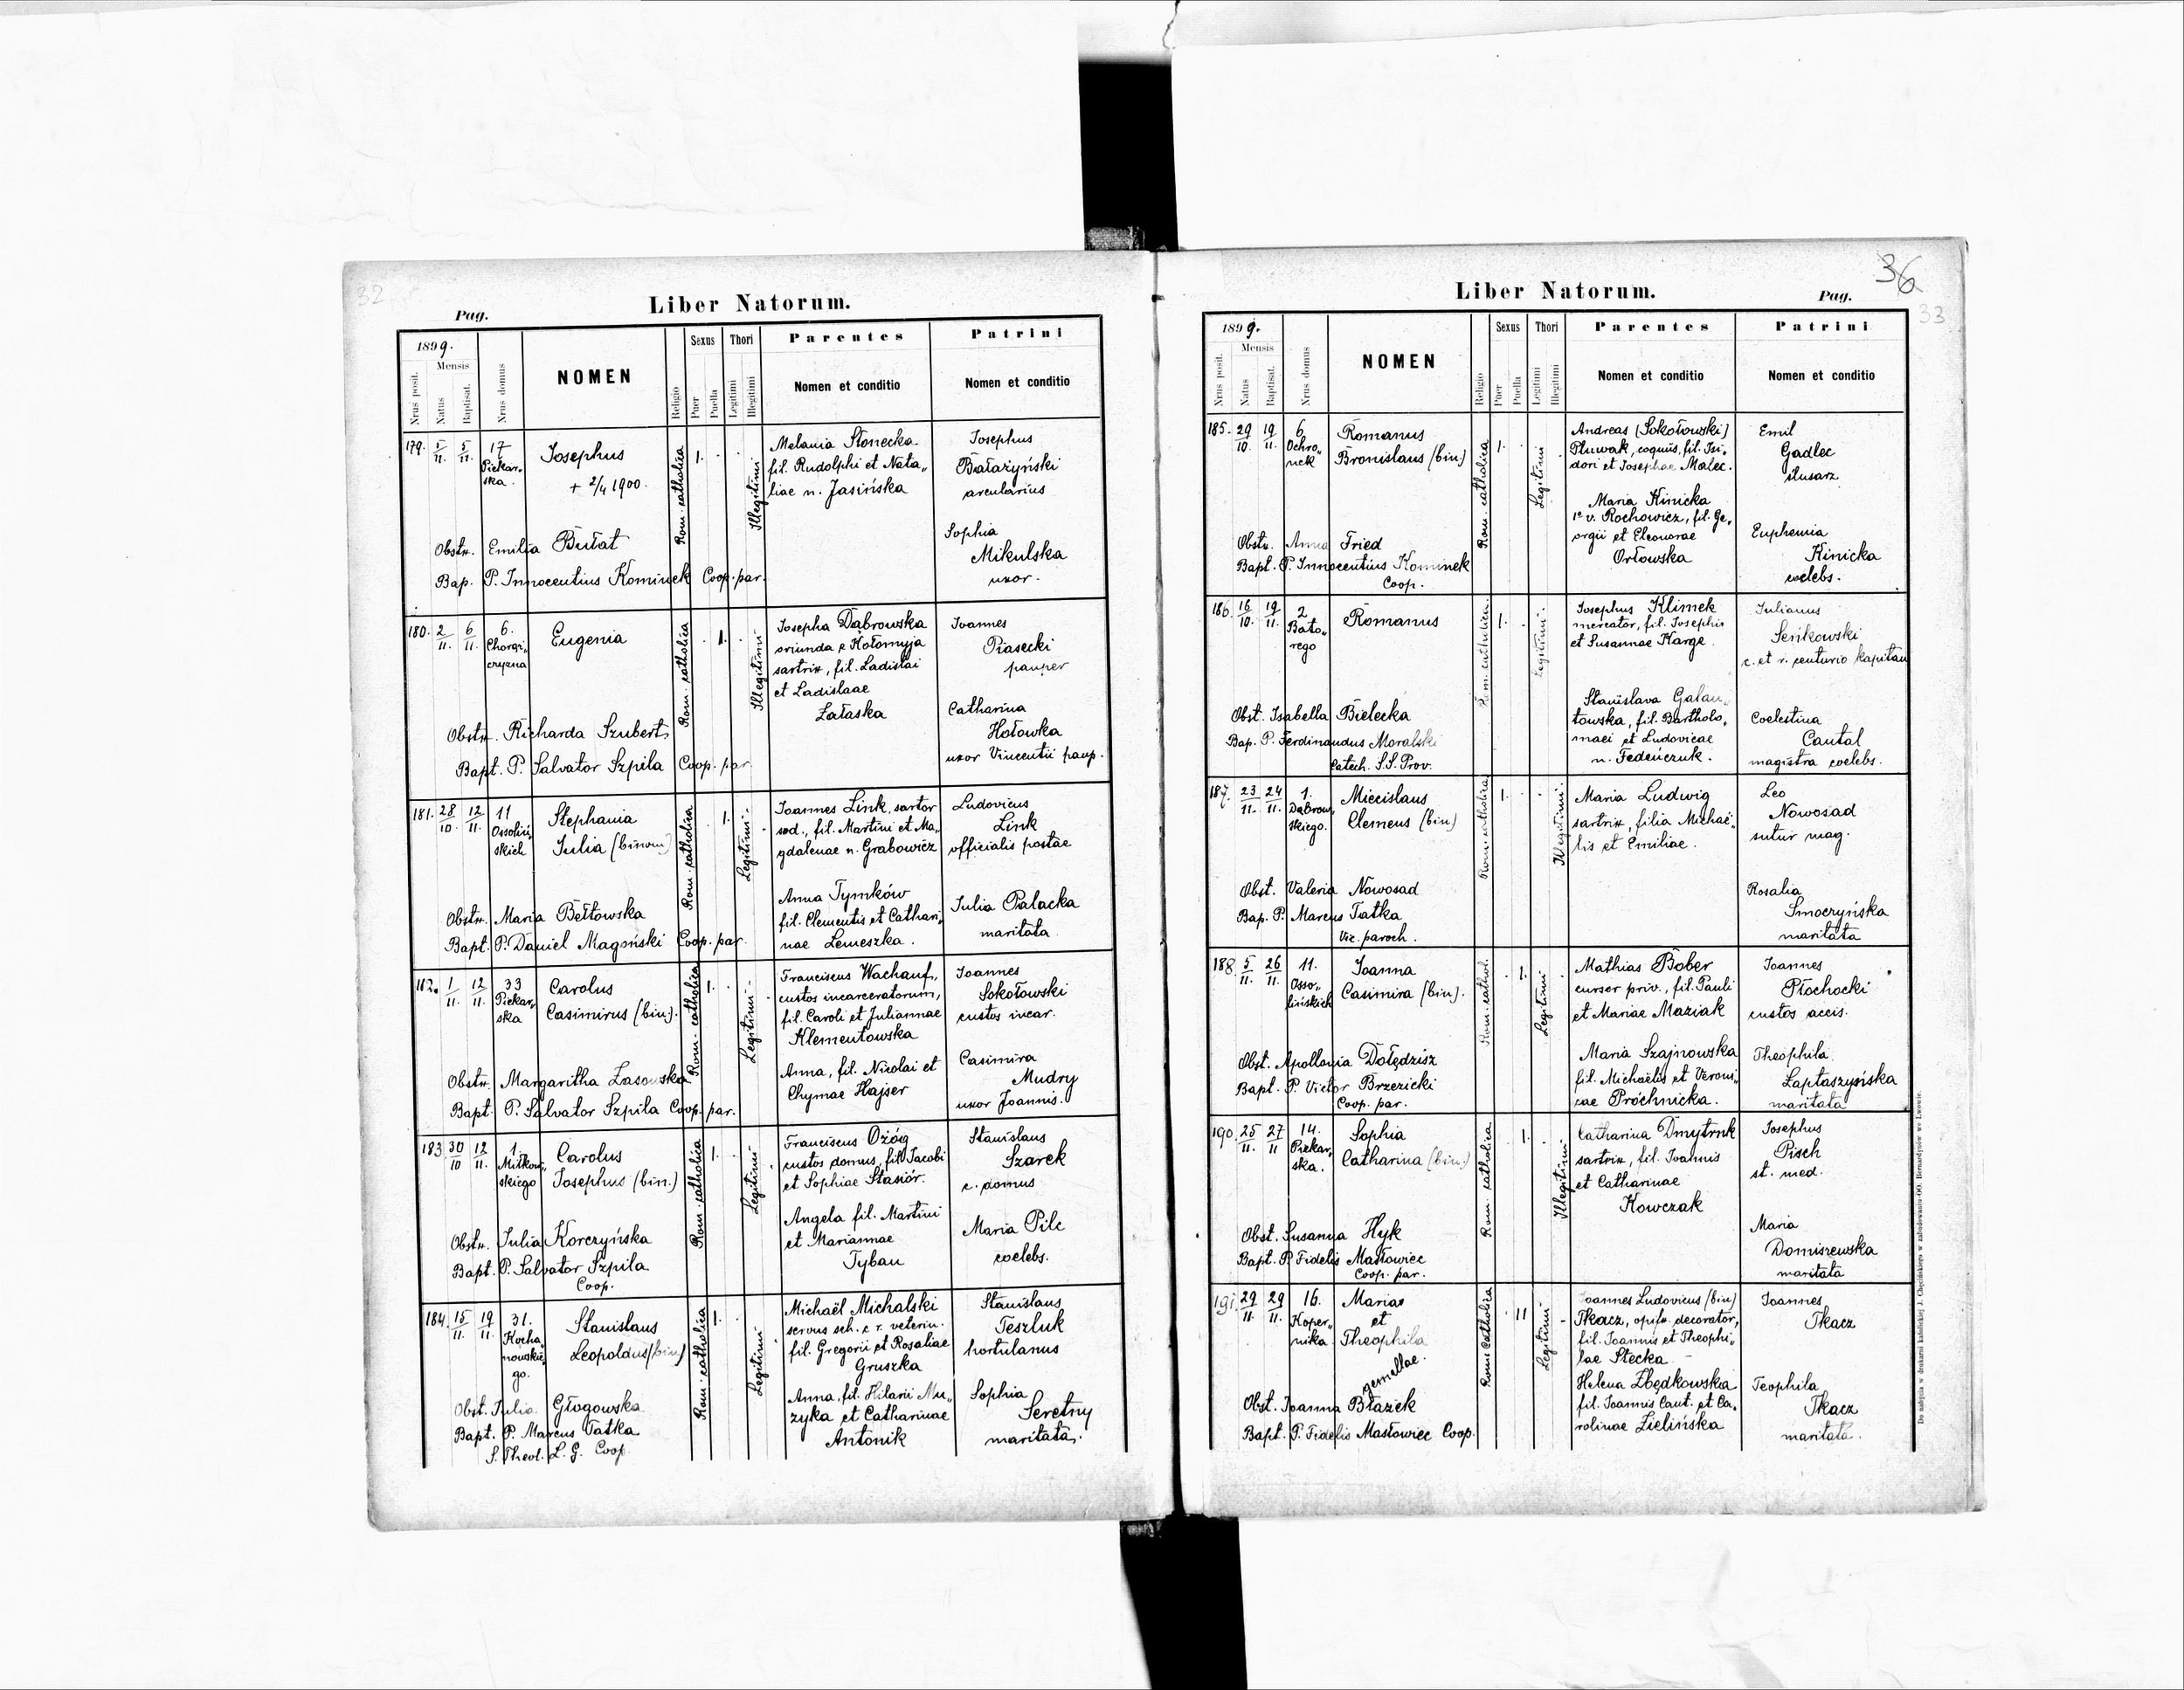 32
Pag.
Liber Natorum.
1899.
Mensis
Nrus posit.
Natus
Baptisat.
Nrus domus
NOMEN
Religio
Sexus
Puer
Puella
Thori
Legitimi
Illegitimi
Parentes
Nomen et conditio
Patrini
Nomen et conditio
179. 5/11. 5/11. 17 Piekar„ska.
Josephus
+ 2/4 1900.
Obstr. Emilia Bułat
Bap. P. Innocentius Kominek Coop. par.
Rom. catholica
1.
Illegitimi
Melania Słonecka
fil. Rudolphi et Nata„
liae n. Jasińska
Josephus
Białażyński
arcularius
Sophia
Mikulska
uxor.
180. 2/11. 6/11. 6. Chorąż„czyzna
Eugenia
Obstr. Richarda Szubert
Bapt. P. Salvator Szpila Coop. par.
Rom. catholica
1.
Illegitimi
Josepha Dąbrowska
oriunda e Kołomyja
sartrix, fil. Ladislai
et Ladislaae
Załaska
Joannes
Piasecki
pauper
Catharina
Hołowka
uxor Vincentii paup.
181. 28/10. 12/11. 11 Ossoliń„skich
Stephania
Julia (binom)
Obstr. Maria Bełtowska
Bapt. P. Daniel Magoński Coop. par.
Rom. catholica
1.
Legitimi
Joannes Link, sartor
sod., fil. Martini et Ma„
gdalenae n. Grabowicz
Anna Tymków
fil. Clementis et Cathari„
nae Lemeszka.
Ludovicus
Link
officialis postae
Julia Palacka
maritata
182. 1/11. 12/11. 33 Piekar„ska
Carolus
Casimirus (bin.)
Obstr. Margaritha Lasowska
Bapt. P. Salvator Szpila Coop. par.
Rom. catholica
1.
Legitimi
Franciscus Wachauf,
custos incarceratorum,
fil. Caroli et Juliannae
Klementowska
Anna, fil. Nicolai et
Chymae Hajser
Joannes
Sokołowski
custos incar.
Casimira
Mudry
uxor Joannis.
183 30/10 12/11. 1. Miłkow„skiego
Carolus
Josephus (bin.)
Obstr. Julia Korczyńska
Bapt. P. Salvator Szpila
Coop.
Rom. catholica
1.
Legitimi
Franciscus Ożóg
custos domus, fil. Jacobi
et Sophiae Stasiór.
Angela fil. Martini
et Mariannae
Tyban
Stanislaus
Szarek
c. domus
Maria Pilc
coelebs.
184. 15/11. 19/11. 31. Kocha„nowskie„go.
Stanislaus
Leopoldus (bin)
Obst. Julia Głogowska
Bapt. P. Marcus Tatka
S. Theol. L. G. Coop.
Rom. catholica
1.
Legitimi
Michaël Michalski
servus sch. c. r. veterin.
fil. Gregorii et Rosaliae
Gruszka
Anna, fil. Hilarii Mu„
zyka et Catharinae
Antonik
Stanislaus
Teszluk
hortulanus
Sophia
Seretny
maritata.
Liber Natorum.
Pag.
36
33
1899.
Mensis
Nrus posit.
Natus
Baptisat.
Nrus domus
NOMEN
Religio
Sexus
Puer
Puella
Thori
Legitimi
Illegitimi
Parentes
Nomen et conditio
Patrini
Nomen et conditio
185. 29/10. 19/11. 6. Ochro„nek
Romanus
Bronislaus (bin.)
Obstr. Anna Fried
Bapt. P. Innocentius Kominek
Coop.
Rom. catholica
1.
Legitimi
Andreas (Sokołowski)
Pluwak, coquus, fil. Isi„
dori et Josephae Malec.
Maria Kinicka
1º v. Rochowicz, fil. Ge„
orgii et Eleonorae
Orłowska
Emil
Gadlec
ślusarz
Euphemia
Kinicka
coelebs.
186. 16/10. 19/11. 2 Bato„rego
Romanus
Obst. Isabella Bielecka
Bap. P. Ferdinandus Moralski
Catech. S.S. Prov.
Rom. catholica
1.
Legitimi
Josephus Klimek
mercator, fil. Josephi
et Susannae Karge.
Stanislava Galan„
towska, fil. Bartholo„
maei et Ludovicae
n. Fedeńczuk.
Julianus
Seńkowski
c. et r. centurio kapitan
Coelestina
Cantal
magistra coelebs.
187. 23/11. 24/11. 1. Dąbrow„skiego.
Miecislaus
Clemens (bin)
Obst. Valeria Nowosad
Bap. P. Marcus Tatka
Vic. paroch.
Rom. catholica
1.
Illegitimi
Maria Ludwig
sartrix, filia Michaë„
lis et Emiliae.
Leo
Nowosad
sutor mag.
Rosalia
Smoczyńska
maritata
188. 5/11. 26/11. 11. Osso„lińskich
Joanna
Casimira (bin).
Obst. Apollonia Dołędzisz
Bapt. P. Victor Brzezicki
Coop. par.
Rom. cathol.
1.
Legitimi
Mathias Bober
cursor priv., fil. Pauli
et Mariae Maziak
Maria Szajnowska
fil. Michaëlis et Veroni„
cae Próchnicka.
Joannes
Płochocki
custos accis.
Theophila
Łaptaszyńska
maritata
190. 25/11. 27/11 14. Piekar„ska.
Sophia
Catharina (bin.)
Obst. Susanna Hyk
Bapt. P. Fidelis Masłowiec
Coop. par.
Rom. catholica
1.
Illegitimi
Catharina Dmytruk
sartrix, fil. Joannis
et Catharinae
Kowczak
Josephus
Pisch
st. med.
Maria
Domiszewska
maritata
191. 29/11. 29/11. 16. Koper„nika
Mariae
et
Theophila
gemellae.
Obst. Joanna Błażek
Bapt. P. Fidelis Masłowiec Coop.
Rom. catholica
11
Legitimi
Joannes Ludovicus (bin)
Tkacz, opifx. decorator,
fil. Joannis et Theophi„
lae Stecka
Helena Zbędkowska
fil. Joannis Cant. et Ca„
rolinae Zielińska
Joannes
Tkacz
Teophila
Tkacz
maritata.
Do nabycia w drukarni katolickiej J. Chęcińskiego w zabudowaniu OO. Bernardynów we Lwowie.